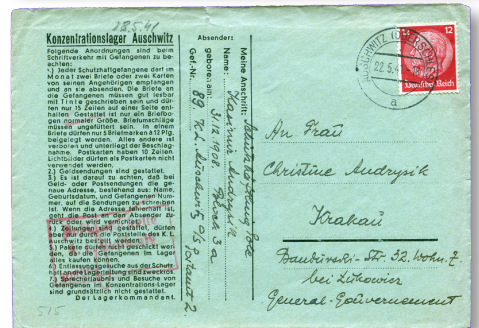 28.5.41
Konzentrationslager Auschwitz
Folgende Anordnungen sind beim
Schriftverkehr mit Gefangenen zu be-
achten:
1.) Jeder Schutzhaftgefangene darf im
Monat zwei Briefe oder zwei Karten
von seinen Angehörigen empfangen
und an sie absenden. Die Briefe an
die Gefangenen müssen gut lesbar
mit Tinte geschrieben sein und dür-
fen nur 15 Zeilen auf einer Seite ent-
halten. Gestattet ist nur ein Briefbo-
gen normaler Größe. Briefumschläge
müssen ungefüttert sein. In einem
Briefe dürfen nur 5 Briefmarken à 12 Pfg.
beigelegt werden. Alles andere ist
verboten und unterliegt der Beschlag-
nahme. Postkarten haben 10 Zeilen.
Lichtbilder dürfen als Postkarten nicht
verwendet werden.
2.) Geldsendungen sind gestattet.
3.) Es ist darauf zu achten, daß bei
Geld- oder Postsendungen die ge-
naue Adresse, bestehend aus: Name,
Geburtsdatum, und Gefangenen-Num-
mer, auf die Sendungen zu schreiben
ist. Wenn die Adresse fehlerhaft ist,
Post an den Absender zu-
rück oder wird vernichtet.
Zeitungen sind gestattet, dürfen
aber nur durch die Poststelle des K. L.
Auschwitz bestellt werden.
Pakete dürfen nicht geschickt wer-
den, da die Gefangenen im Lager
alles kaufen können.
6.) Entlassungsgesuche aus der Schutz-
haft an die Lagerleitung sind zwecklos.
7.) Sprecherlaubnis und Besuche von
Gefangenen im Konzentrations-Lager
sind grundsätzlich nicht gestattet.
Der Lagerkommandant.
515
Absender:
Meine Anschrift:
Name: Kasimir Andrysik
geboren: am 3.12.1908. Block 3 a
Gef.-Nr.: 89. K.L. Auschwitz O/S
Postamt 2
AUSCHWITZ (OBERSCHLES)
22.5.4
a
12
Deutsches Reich
An Frau
Christine Andrysik
Krakau
Str. 32. Wohn. 7
bei
General-Gouvernement